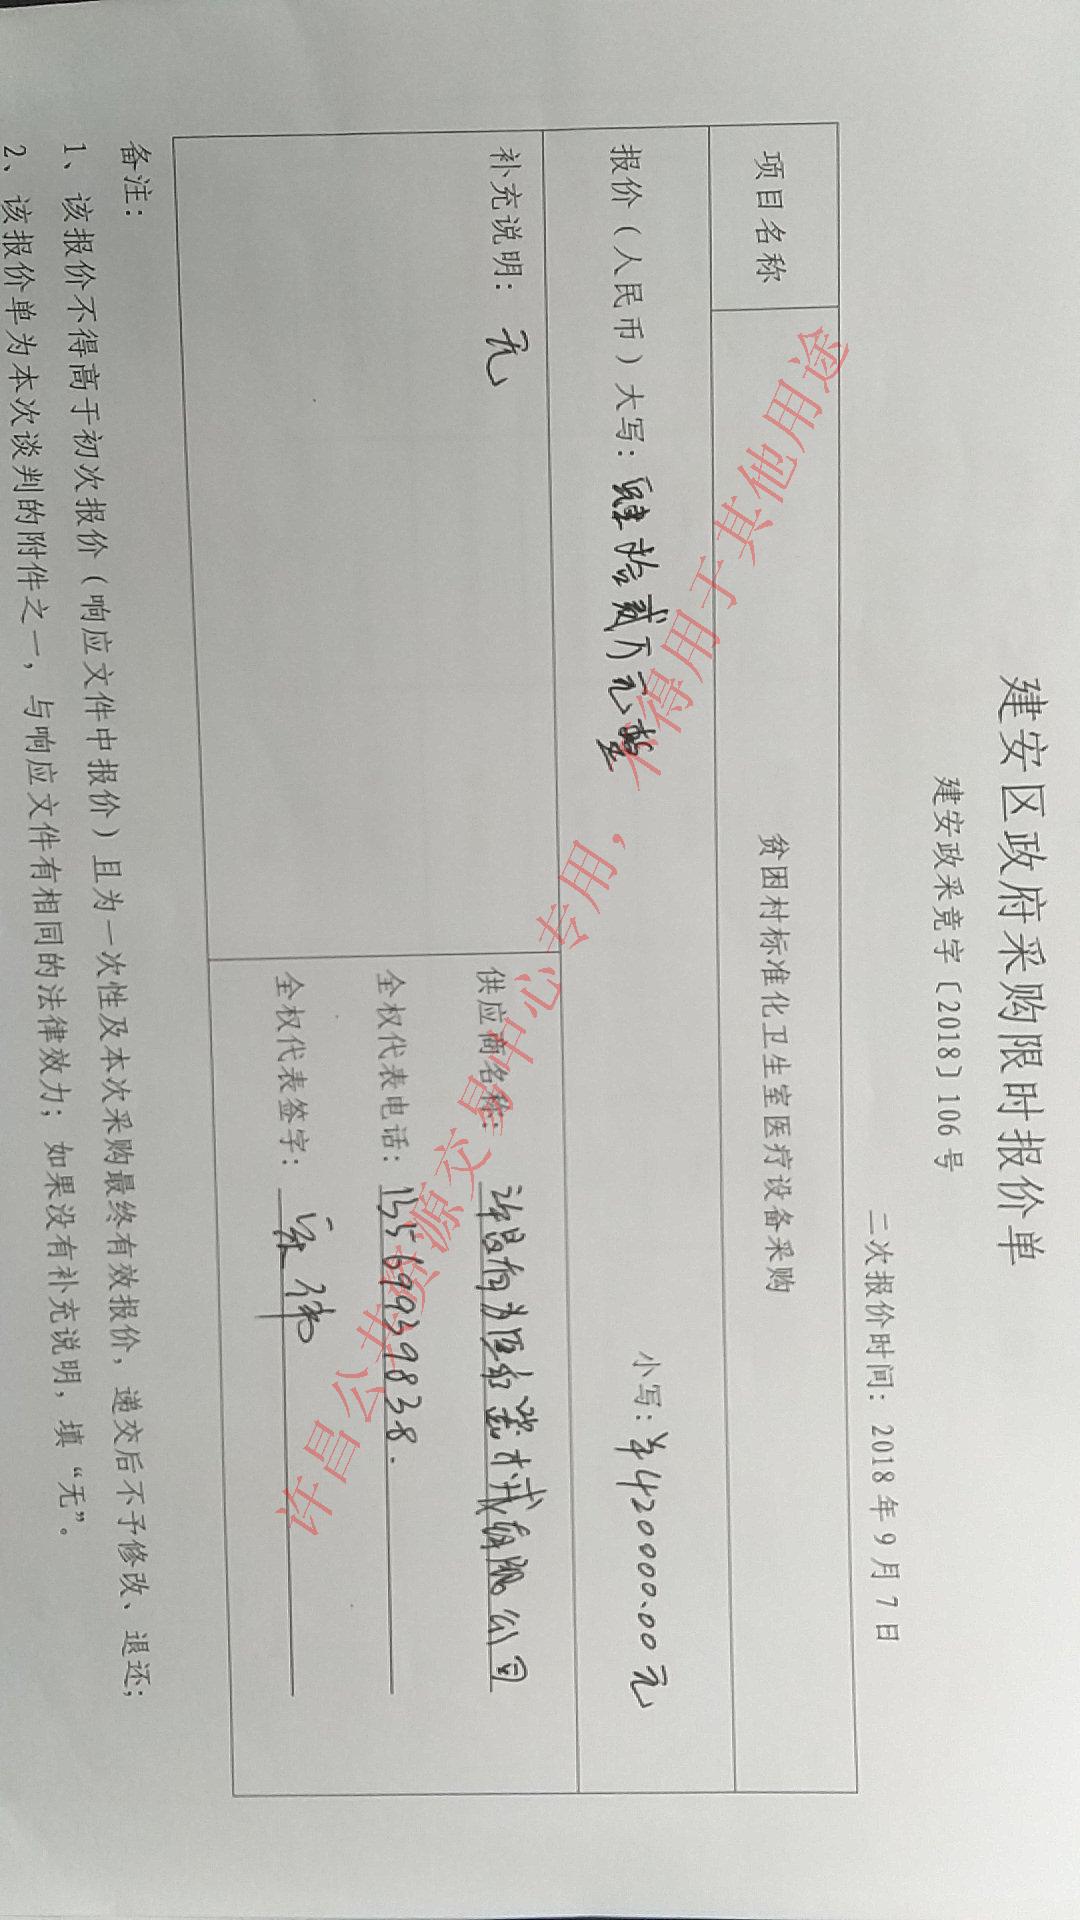 建安区政府采购限时报价单
建安政采竞字〔2018〕106号
二次报价时间：2018年9月7日
项目名称
贫困村标准化卫生室医疗设备采购
报价（人民币）大写：肆拾贰万元整
小写：¥420000.00元
补充说明：无
供应商名称：许昌尚为医和器械有限公司
全权代表电话：
全权代表签字：
备注：
1、该报价不得高于初次报价（响应文件中报价）且为一次性及本次采购最终有效报价，递交后不予修改、退还；
2、该报价单为本次谈判的附件之一，与响应文件有相同的法律效力；如果没有补充说明，填“无”。
许昌公共资源交易中心专用，不得用于其他用途